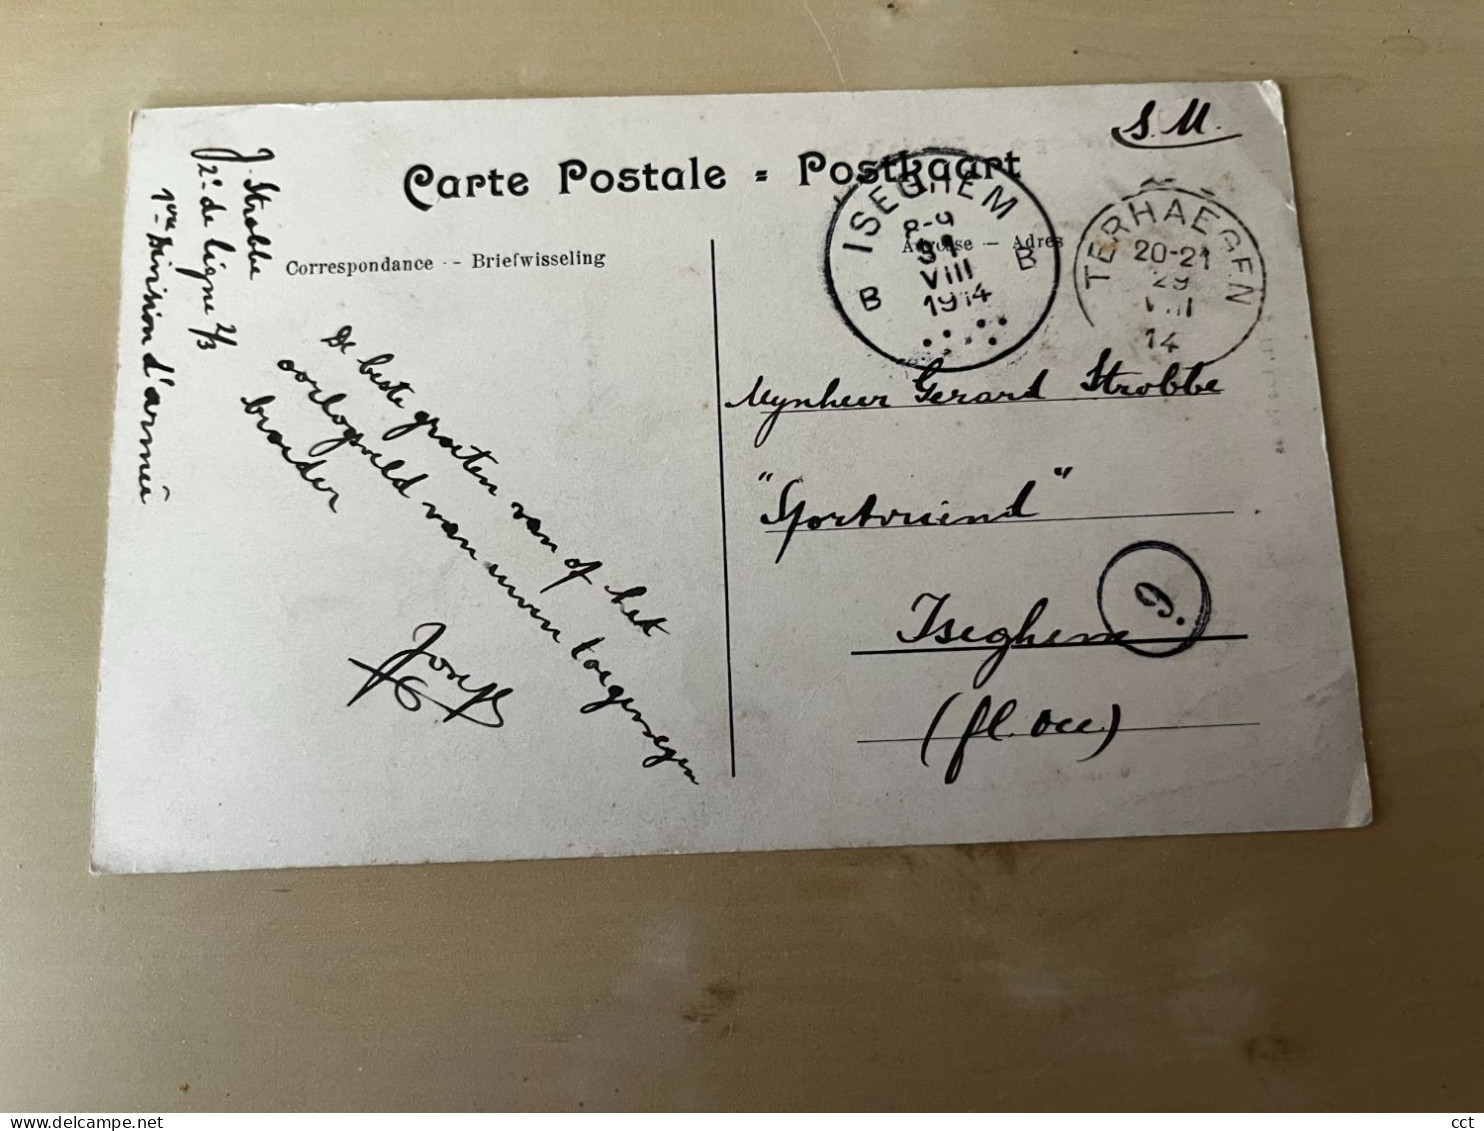 S.M.
Carte Postale = Postkaart
Correspondance -- Briefwisseling
Adresse — Adres
ISEGHEM
8-9
31
VIII
1914
B B
TERHAEGEN
20-21
29
VIII
14
J. Strobbe
2e de ligne 2/3
1ere Division d'armée
De beste groeten van op het
oorlogveld van uwen toegenegen
broeder
Joseph
Mynheer Gerard Strobbe
"Sportvriend"
Iseghem
(fl. occ)
9.
cct